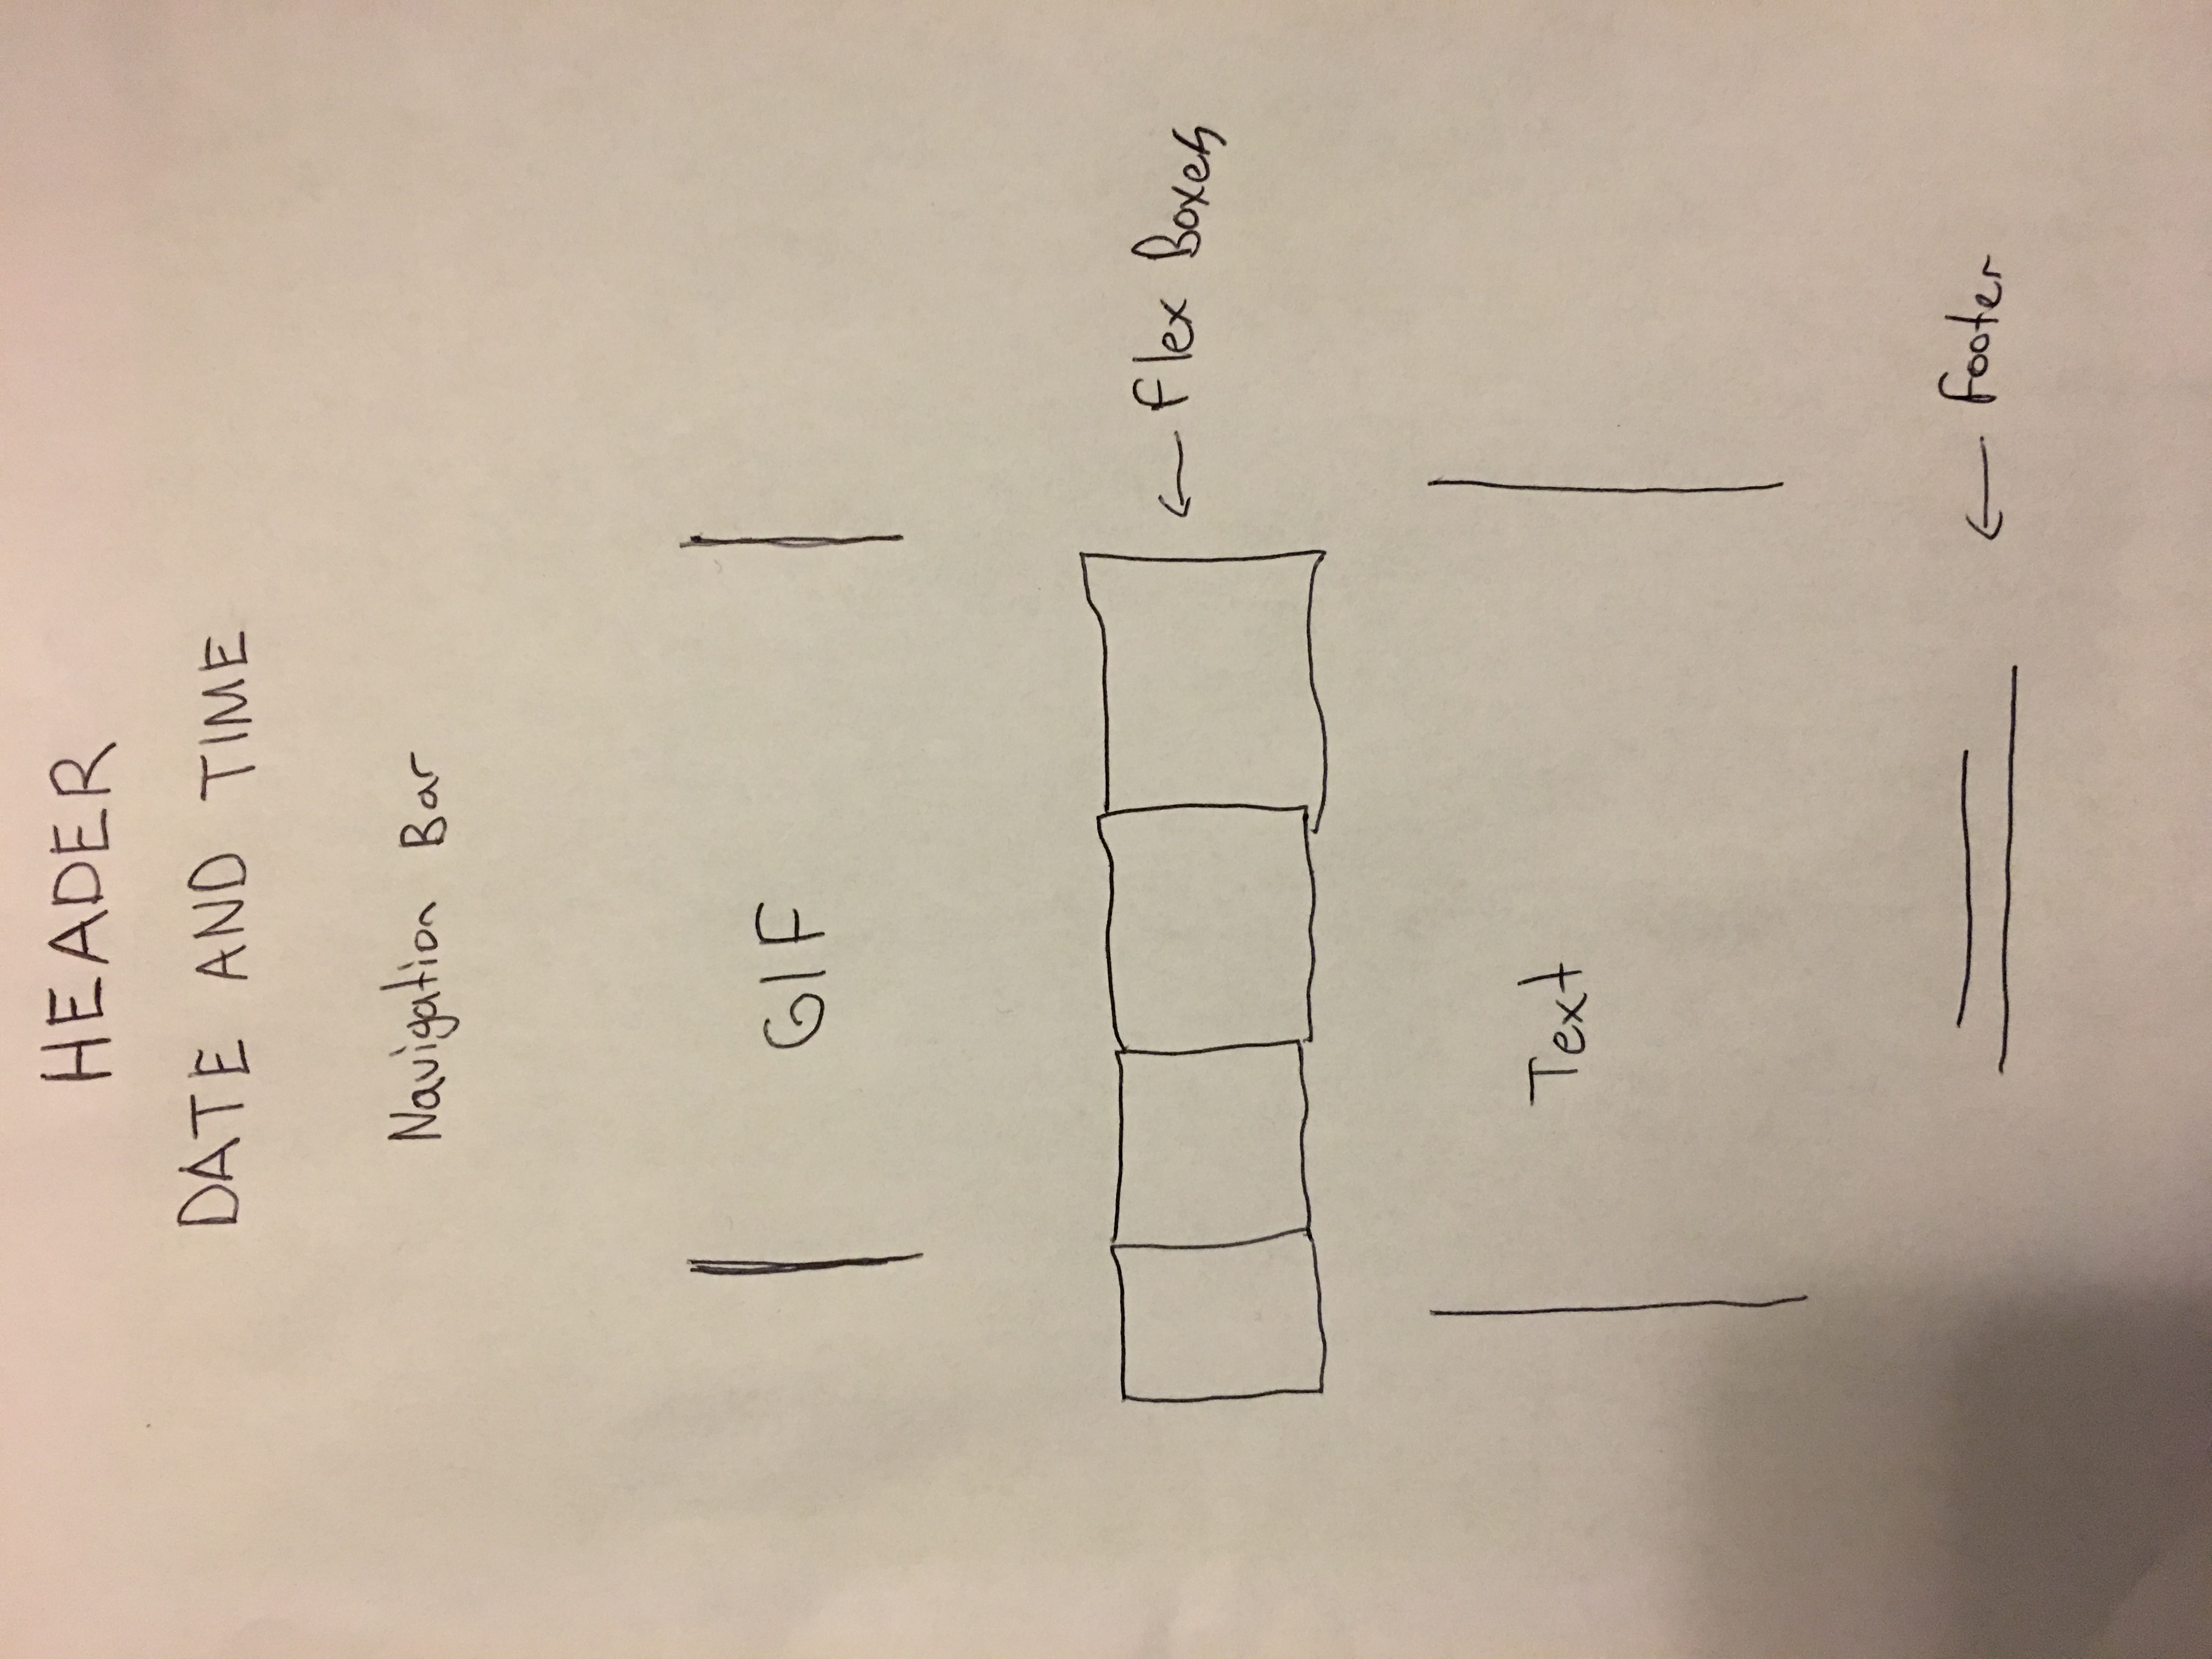 HEADER
DATE AND TIME
Navigation Bar
GIF
← Flex Boxes
Text
← Footer